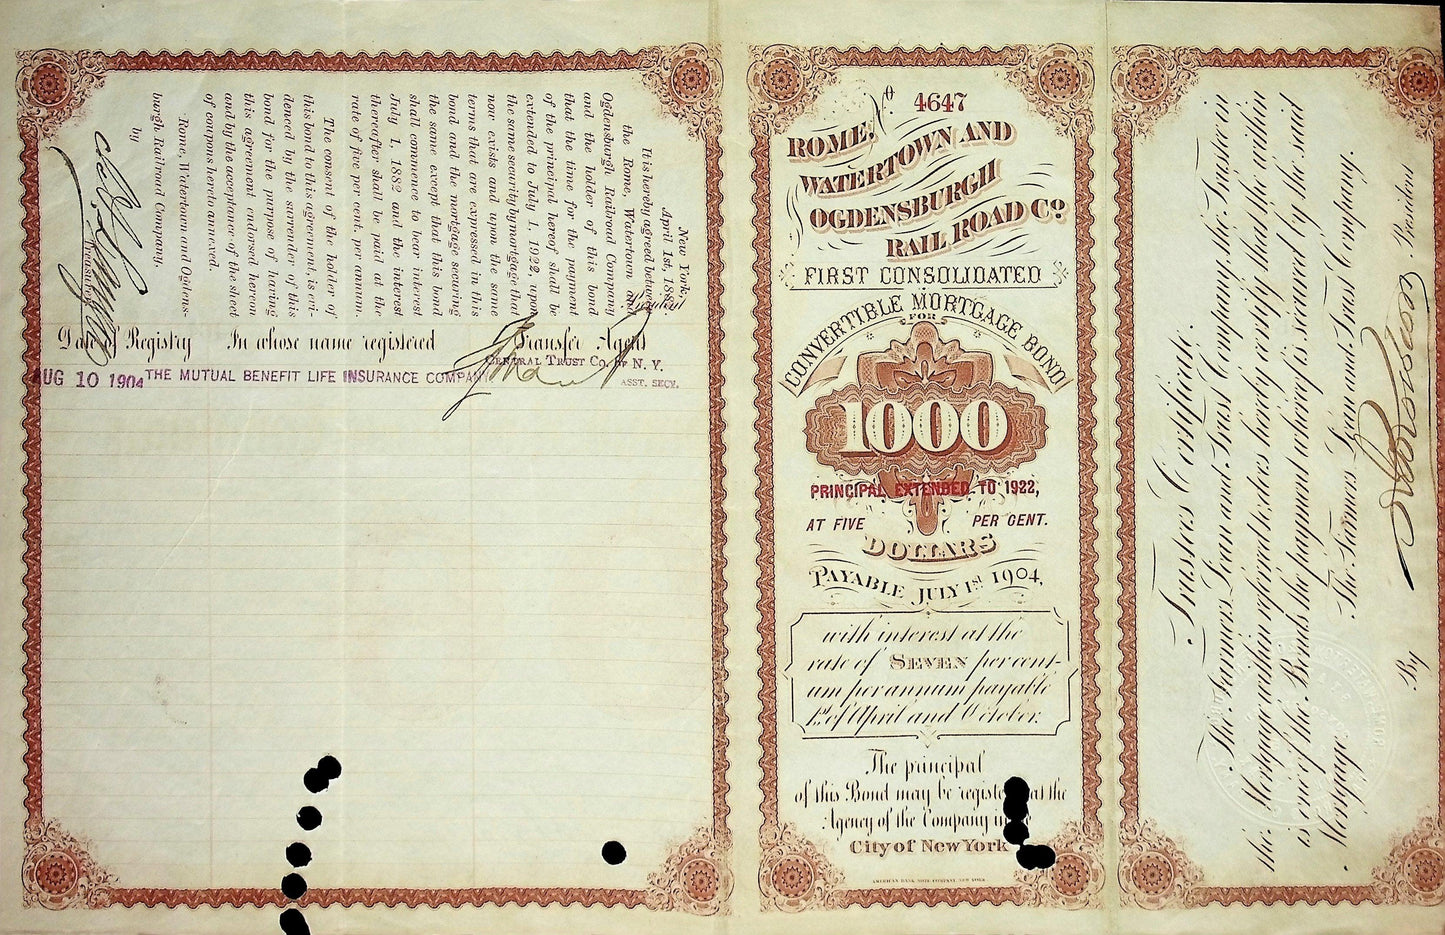 New York,
April 1st, 1882
It is hereby agreed between
the Rome, Watertown and
Ogdensburgh Railroad Company
and the holder of this bond
that the time for the payment
of the principal hereof shall be
extended to July 1. 1922, upon
the same security by mortgage that
now exists and upon the same
terms that are expressed in this
bond and the mortgage securing
the same except that this bond
shall commence to bear interest
July 1. 1882 and the interest
thereafter shall be paid at the
rate of five per cent. per annum.
The consent of the holder of
this bond to this agreement, is evi-
denced by the surrender of this
bond for the purpose of having
this agreement endorsed hereon
and by the acceptance of the sheet
of coupons hereto annexed.
Rome, Watertown and Ogdens-
burgh Railroad Company,
by
Treasurer
Date of Registry In whose name registered Transfer Agent
CENTRAL TRUST CO. OF N. Y.
AUG 10 1904 THE MUTUAL BENEFIT LIFE INSURANCE COMPANY
ASST. SECY.
No 4647
ROME,
WATERTOWN AND
OGDENSBURGH
RAIL ROAD Co.
FIRST CONSOLIDATED
CONVERTIBLE MORTGAGE BOND
FOR
1000
PRINCIPAL EXTENDED TO 1922,
AT FIVE PER CENT.
DOLLARS
PAYABLE JULY 1st 1904,
with interest at the
rate of SEVEN per cent-
um per annum payable
1st of April and October.
The principal
of this Bond may be registe at the
Agency of the Company in
City of New York
AMERICAN BANK NOTE COMPANY, NEW YORK
Trustees Certificate.
The Farmers Loan and Trust Company, the Trustee in
the Mortgage within referred to, does hereby certify that the within
is one of the Bonds the payment whereof is secured by the said
Mortgage.
The Farmers Loan and Trust Company.
By President